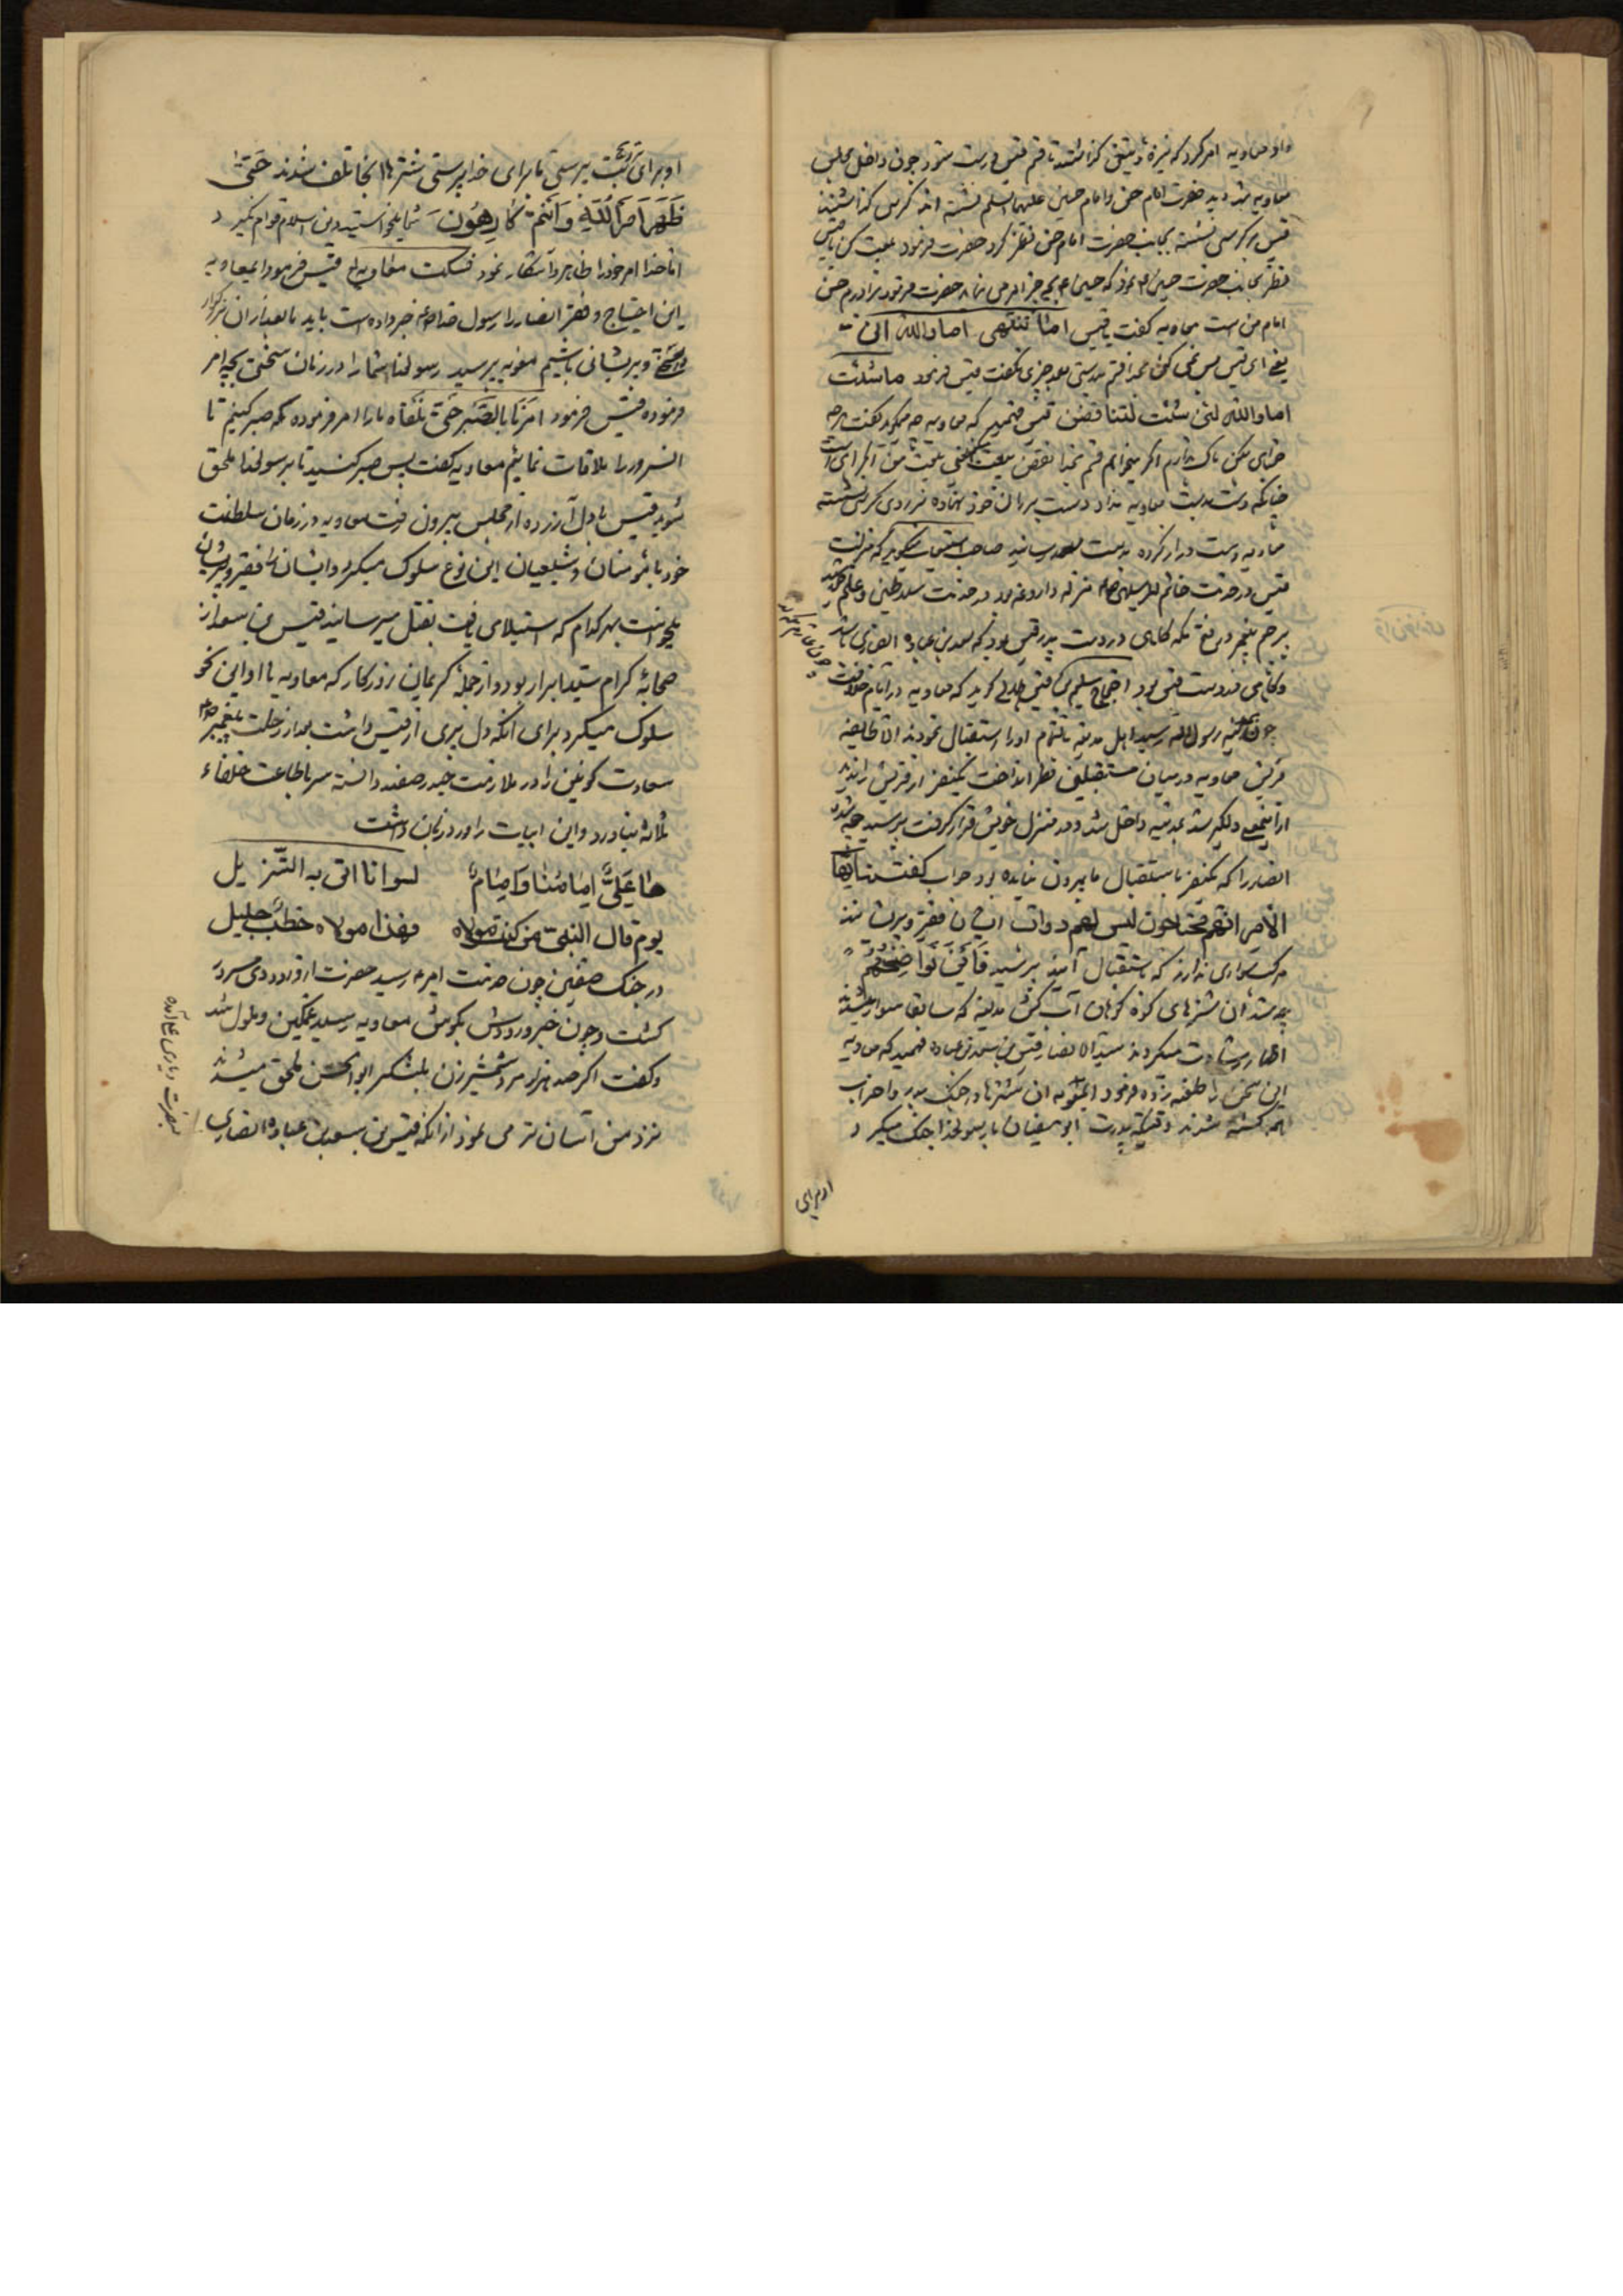 داد معاویه امر کرد که نیزه و تیغ گذاشتند تا قسم قیس درست شود چون داخل مجلس
معاویه شد دید حضرت امام حسن و امام حسین علیهما السلم نشسته اند کرسی گذاشتند
قیس بر کرسی نشسته بجانب حضرت امام حسن نظر کرد حضرت فرمود بیعت کن یا قیس
نظر بجانب حضرت حسین نمود که حسین بچه چیز امر می نماید حضرت فرمود برادرم حسن
امام من است معاویه گفت یا قیس اما تنتهی اما والله انی
یعنی ای قیس بس نمی کنی بخدا قسم بدرستی بعد چیزی نگفت قیس فرمود ما شئت
اما والله لئن شئت لتناقضن قیس فهمید که معاویه چه میگوید گفت هر چه
خواهی بکن باک ندارم اگر میخواهم قسم بخدا نقض بیعت
چنانکه دست به بیعت معاویه نداد دست بر ران خود نهاده بر روی کرسی نشسته
معاویه دست دراز کرده بدست رسانید صاحب استیعاب میگوید که منزلت
قیس در خدمت خاتم المرسلین منزله داروغه بود در خدمت سلاطین و علم
برحم پیغمبر در فتح مکه گاهی در دست پدر قیس بود که سعد بن عباده انصاری باشد
و گاهی در دست قیس بود احتجاج سلیم بن قیس هلالی گوید که معاویه در ایام خلافت
چون بمدینه رسول الله رسید اهل مدینه بالتمام او را استقبال نمودند اما طایفه
قریش معاویه در میان مستقبلین نظر انداخت یکنفر از قریش را ندید
از اینمعنی دلگیر شد بمدینه داخل شد و در منزل خویش قرار گرفت پرسید چه شده
انصار را که یکنفر باستقبال ما بیرون نیامده بود جواب گفتند یا ایها
الامیر انهم محتاجون لیس لهم دواب ایشان فقیر و پریشانند
مرکب سواری ندارند که باستقبال آیند پرسید فاین نواضحهم
چه شد آن شترهای کوزه کوهان آب کش مدینه که سابقا سوار میشدند
اظهار رشادت میکردند سید الانصار قیس بن سعد بن عباده فهمید که معاویه
این سخن را طعنه زده فرمود ایمعویه آن شترها در جنگ بدر و احزاب
همه کشته شدند وقتیکه پدرت ابو سفیان با رسولخدا جنگ میکرد
او برای
او برای بت پرستی ما برای خدا پرستی شترها آنجا تلف شدند حتی
ظهر امر الله و انتم کارهون شما میخواستید دین اسلام قوام نگیرد
اما خدا امر خود را ظاهر و آشکار نمود فسکت معاویه قیس فرمود ایمعاویه
این احتیاج و فقر انصار را رسول خدا خبر داده است باید ما بعد از آن بزرگوار
و پریشانی باشیم معویه پرسید رسولخدا شما را در زمان سختی بچه امر
فرموده قیس فرمود امرنا بالصبر حتی نلقاه ما را امر فرموده که صبر کنیم تا
آنسرور را ملاقات نمائیم معاویه گفت پس صبر کنید تا برسولخدا ملحق
شوید قیس با دل آزرده از مجلس بیرون رفت معاویه در زمان سلطنت
خود با مؤمنان و شیعیان این نوع سلوک میکرد و ایشان را فقیر و پریشان
میخواست بهر کدام که استیلا می یافت بقتل میرسانید قیس بن سعد از
صحابه کرام سید ابرار بود و از جمله کریمان روزگار که معاویه با او این نحو
سلوک میکرد برای آنکه دل پری از قیس داشت بعد از رحلت پیغمبر
سعادت کونین را در ملازمت حیدر صفدر دانسته سر باطاعت خلفاء
ثلاثه نیاورد و این ابیات را ورد زبان داشت
هذا علی امامنا و امام لسوانا اتی به التنزیل
یوم قال النبی من کنت مولاه فهذا مولاه خطب جلیل
در جنگ صفین چون خدمت امیر رسید حضرت از ورود وی مسرور
گشت و چون خبر ورودش بگوش معاویه رسید غمگین و ملول شد
و گفت اگر صد هزار مرد شمشیر زن بلشکر ابو الحسن ملحق میشد
نزد من آسان تر می نمود از آنکه قیس بن سعد بن عباده انصاری
بنصرت و یاری علی آمده